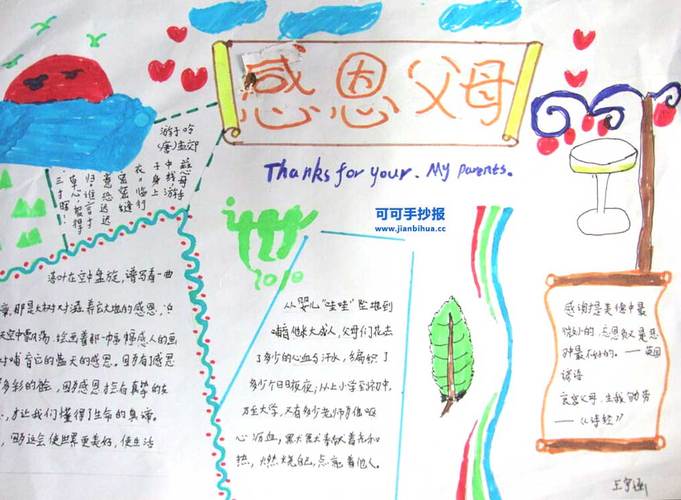 感恩父母
Thanks for your. My parents.
可可手抄报
www.jianbihua.cc
游子吟
(唐)孟郊
慈母手
中线游
子身上
衣。临行
密密缝
意恐迟迟
归。谁言寸
草心报得
三春晖。
2010
落叶在空中盘旋，谱写着一曲
那是大树对滋养它大地的感恩，
天空中飘荡，绘着那一幅幅感人的画
对哺育它的蓝天的感恩。因为有了感恩
多彩的
才让我们懂得了生命的真谛。
因为这会使世界更美好，使生活
从婴儿“哇哇”坠地到
哺育他长大成人，父母们花去
了多少的心血与汗水，编织了
多少个日日夜夜；从上小学到初中，
乃至大学，又有多少老师为他呕
心沥血，默默奉献着光和
热，燃烧自己，点亮着他人。
感谢是美德中最
微小的，忘恩负义是恶
中最不好的。——英国
谚语
哀哀父母，生我劬劳
——《诗经》